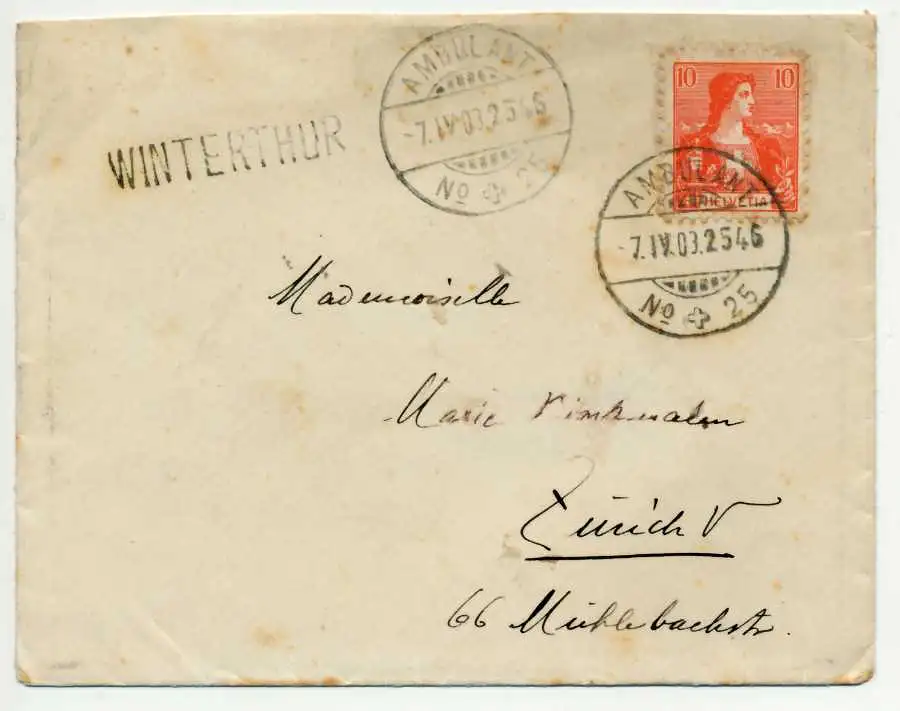 AMBULANT
-7.IV.03.2546
No 25
WINTERTHUR
10 10
HELVETIA
AMBULANT
-7.IV.03.2546
No 25
Mademoiselle
Marie
Zürich V
66 Mühlebachstr.